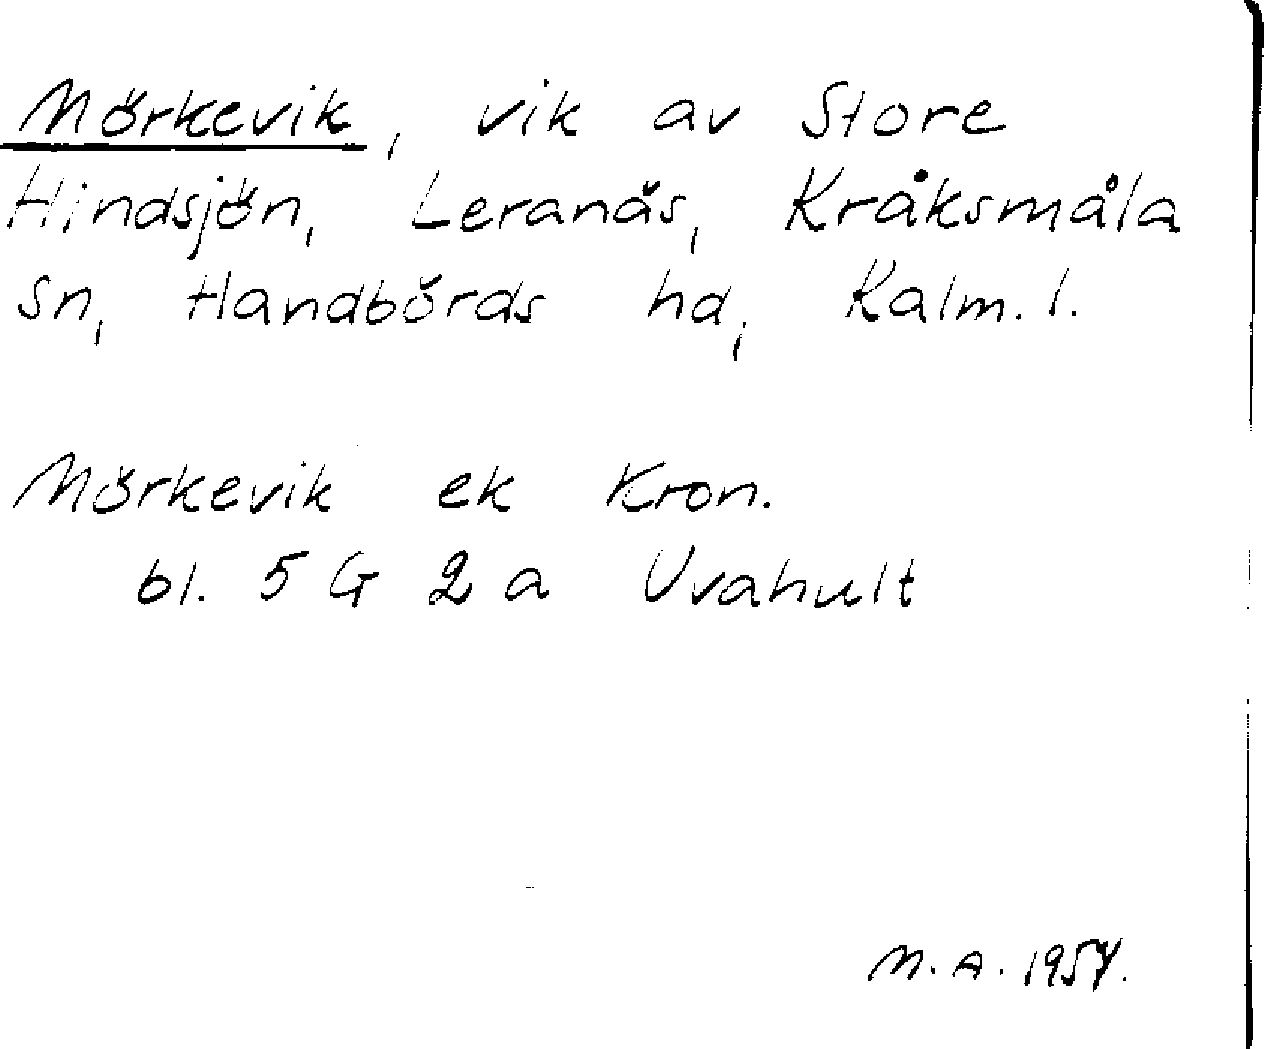 Mörkevik, vik av Store
Hindsjön, Leranäs, Kråksmåla
sn, Handbörds hd, Kalm. l.
Mörkevik ek Kron.
bl. 5 G 2 a Uvahult
M. A. 1954.